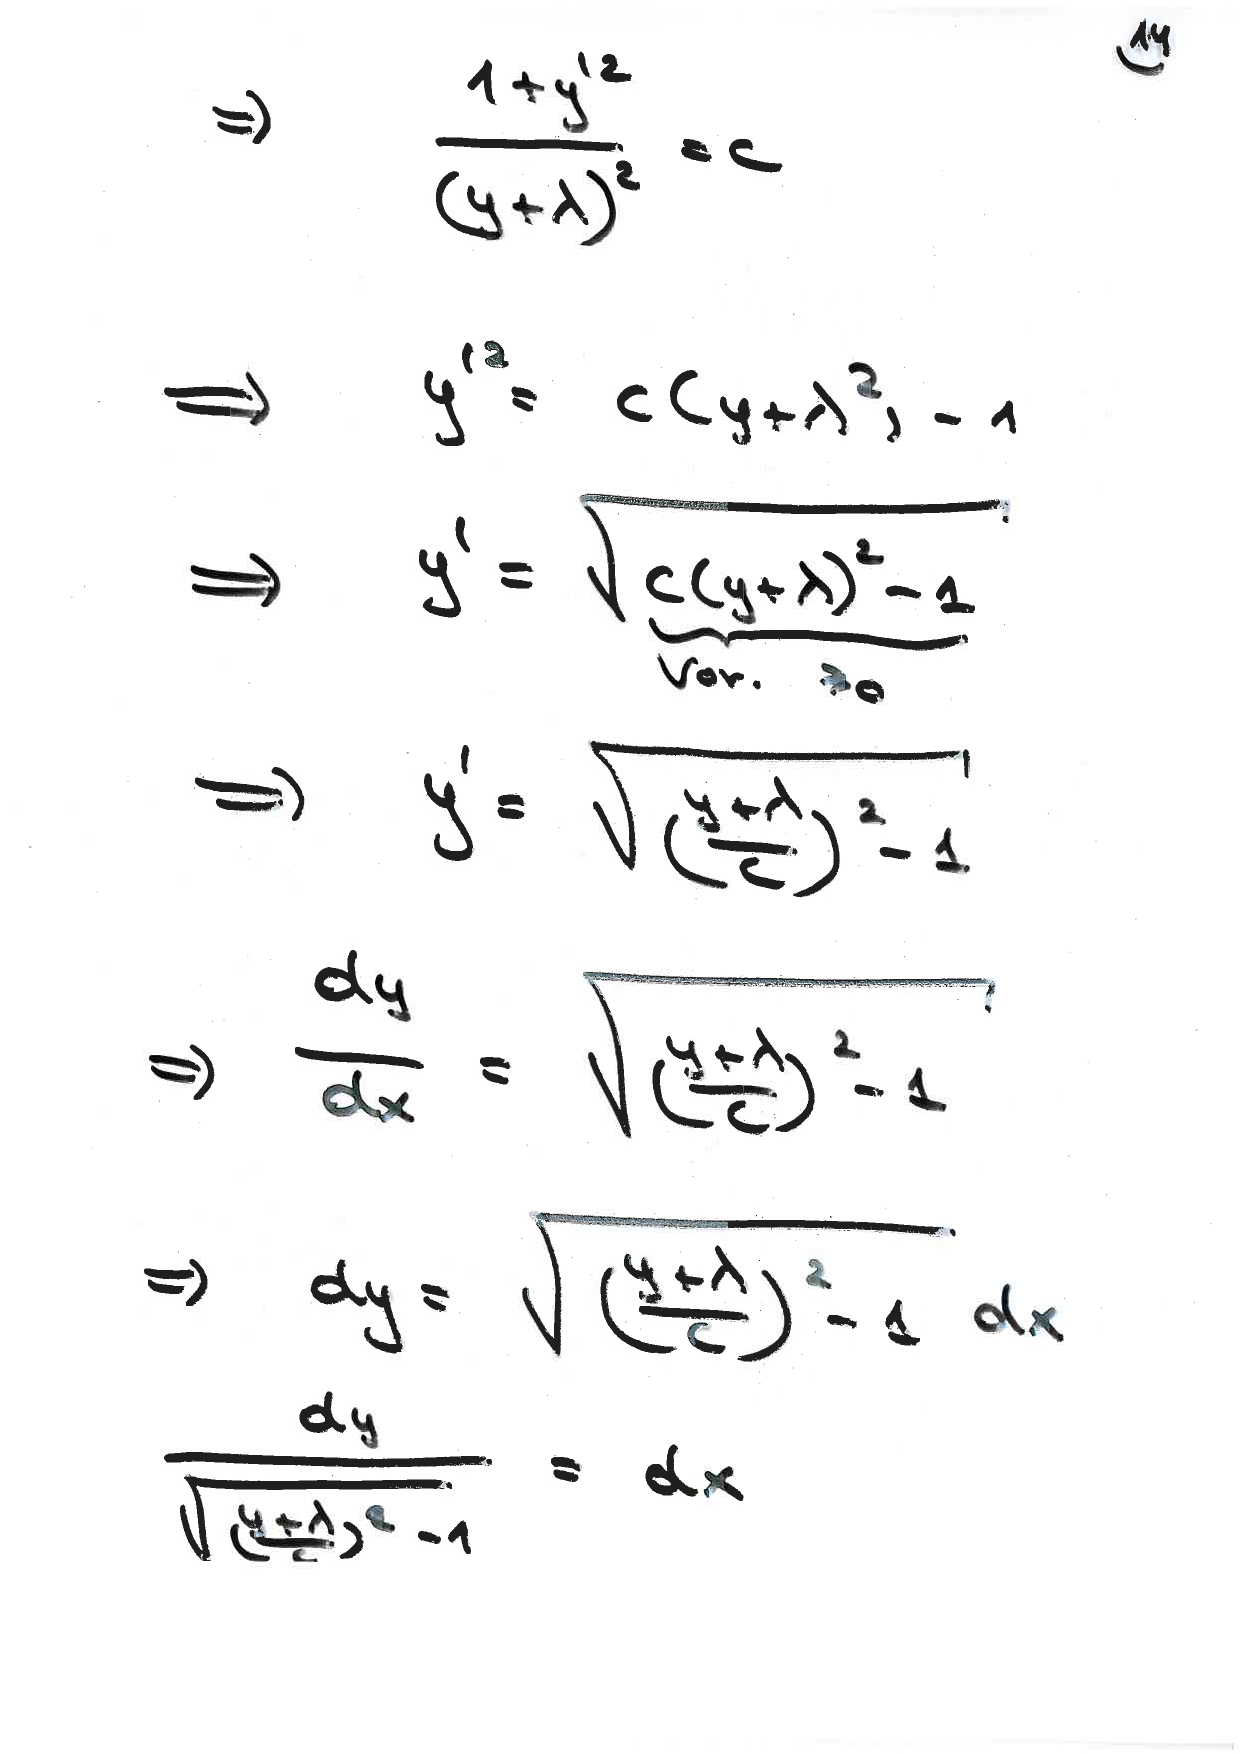 14
⇒ (1+y'²)/(y+λ)² = c
⇒ y'² = c(y+λ²) - 1
⇒ y' = √(c(y+λ)² - 1)
Vor. ≥0
⇒ y' = √(((y+λ)/c)² - 1)
⇒ dy/dx = √(((y+λ)/c)² - 1)
⇒ dy = √(((y+λ)/c)² - 1) dx
dy/√(((y+λ)/c)² - 1) = dx